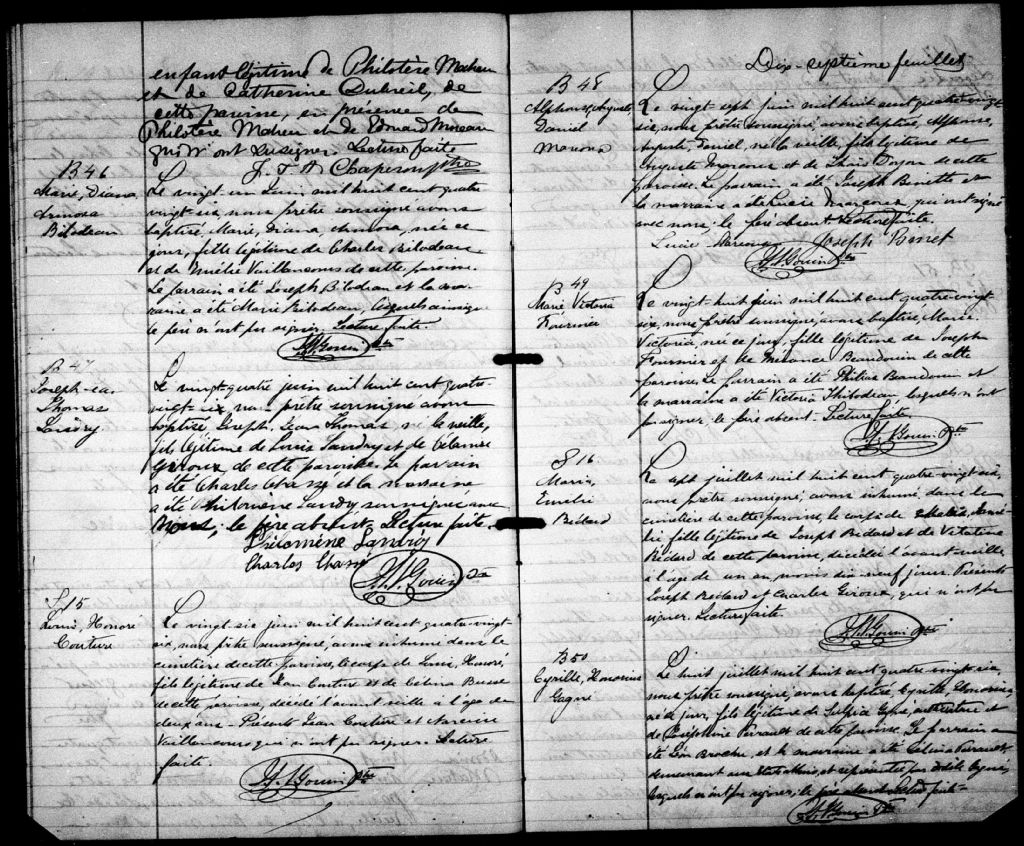 enfant légitime de Philotère Maheu
et de Catherine Dubreil, de
cette paroisse, en présence de
Philotère Maheu et de Edouard Moreau
qui n'ont su signer. Lecture faite
J. F. A. Chaperon ptre
B 46
Marie, Diana,
Bilodeau
Le vingt un juin mil huit cent quatre
vingt-six, nous prêtre soussigné avons
baptisé Marie, Diana, née ce
jour, fille légitime de Charles Bilodeau
et de Emélie Vaillancourt de cette paroisse.
Le parrain a été Joseph Bilodeau et la mar-
raine a été Marie Bilodeau, lesquels ainsi que
le père n'ont pu signer. Lecture faite.
Gouin ptre
B 47
Joseph
Thomas
Landry
Le vingt-quatre juin mil huit cent quatre-
vingt-six, nous prêtre soussigné avons
baptisé Joseph, Jean Thomas, né la veille,
fils légitime de Louis Landry et de
Giroux de cette paroisse. Le parrain
a été Charles Chassé et la marraine
a été Philomène Landry soussignés avec
nous; le père absent. Lecture faite.
Philomène Landry
Charles Chassé
Gouin ptre
S 15
Louis, Honoré
Couture
Le vingt-six juin mil huit cent quatre-vingt-
six, nous prêtre soussigné, avons inhumé dans le
cimetière de cette paroisse, le corps de Louis, Honoré,
fils légitime de Jean Couture et de Célina Busse
de cette paroisse, décédé l'avant-veille à l'âge de
deux ans. Présents Jean Couture et Narcisse
Vaillancourt qui n'ont pu signer. Lecture
faite.
Gouin ptre
Dix-septième feuillet
B 48
Alphonse, Auguste,
Daniel
Marcoux
Le vingt sept juin mil huit cent quatre-vingt
six, nous prêtre soussigné, avons baptisé, Alphonse,
Auguste, Daniel, né la veille, fils légitime de
Auguste Marcoux et de Doyon de cette
paroisse. Le parrain a été Joseph Binette et
la marraine a été Lucie Marcoux, qui ont signé
avec nous, le père absent. Lecture faite.
Lucie Marcoux Joseph Binet
Gouin ptre
B 49
Marie Victoria
Fournier
Le vingt-huit juin mil huit cent quatre-vingt
six, nous prêtre soussigné, avons baptisé, Marie
Victoria, née ce jour, fille légitime de Joseph
Fournier et de Beaudouin de cette
paroisse. Le parrain a été Philias Beaudouin et
la marraine a été Victoria Thibodeau, lesquels n'ont
pu signer, le père absent. Lecture faite
Gouin ptre
S 16
Marie,
Emélie
Bédard
Le sept juillet mil huit cent quatre vingt six,
nous prêtre soussigné, avons inhumé dans le
cimetière de cette paroisse, le corps de Marie, Emé-
lie fille légitime de Joseph Bédard et de
Bédard de cette paroisse, décédée l'avant-veille
à l'âge de un an, moins dix-neuf jours. Présents
Joseph Bédard et Charles Giroux, qui n'ont pu
signer. Lecture faite.
Gouin ptre
B 50
Cyrille, Honorius
Gagné
Le huit juillet mil huit cent quatre vingt-six
nous prêtre soussigné, avons baptisé, Cyrille, Honorius,
né ce jour, fils légitime de Gagné, cultivateur et
de Joséphine Perrault de cette paroisse. Le parrain a
été Léon Brochu et la marraine a été Célina Perrault
demeurant aux Etats-Unis, et représentés par
lesquels n'ont pu signer, le père absent. Lecture faite.
Gouin ptre